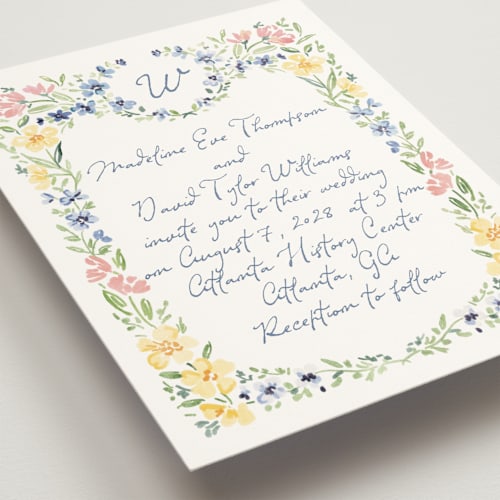 W
Madeline Eve Thompson
and
David Tylor Williams
invite you to their wedding
on August 7, 2028 at 3 pm
Atlanta History Center
Atlanta, GA
Reception to follow